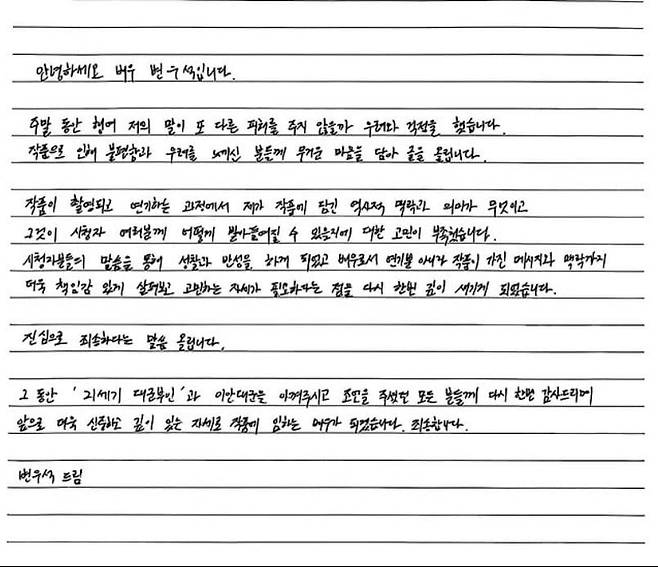 안녕하세요 배우 변우석입니다.
주말 동안 혹여 저의 말이 또 다른 피해를 주지 않을까 우려와 걱정을 했습니다.
작품으로 인해 불편함과 우려를 느끼신 분들께 무거운 마음을 담아 글을 올립니다.
작품이 촬영되고 연기하는 과정에서 제가 작품에 담긴 역사적 맥락과 의미가 무엇이고
그것이 시청자 여러분께 어떻게 받아들여질 수 있을지에 대한 고민이 부족했습니다.
시청자분들의 말씀을 통해 성찰과 반성을 하게 되었고 배우로서 연기뿐 아니라 작품이 가진 메시지와 맥락까지
더욱 책임감 있게 살펴보고 고민하는 자세가 필요하다는 점을 다시 한번 깊이 새기게 되었습니다.
진심으로 죄송하다는 말씀 올립니다.
그 동안 '21세기 대군부인'과 이안대군을 아껴주시고 응원을 주셨던 모든 분들께 다시 한번 감사드리며
앞으로 더욱 신중하고 깊이 있는 자세로 작품에 임하는 배우가 되겠습니다. 죄송합니다.
변우석 드림